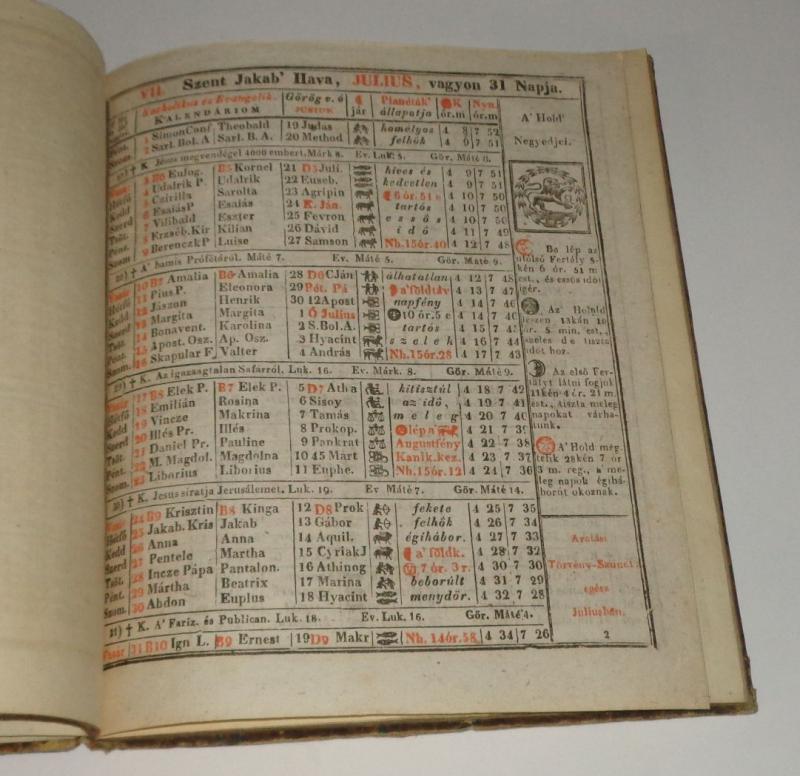 VII. Szent Jakab' Hava, JULIUS, vagyon 31 Napja.
Katholikus és Evangelik. Görög v. ó Planéták' K Nyu.
KALENDÁRIOM JUNIUS jár állapotja ór.m ór.m
1 Simon Conf Theobald 19 Judas homályos 4 8 7 52
2 Sarl. Bol. A Sarl. B. A. 20 Method felhők 4 9 7 51
K Jésus megvendégel 4000 embert. Márk 8. Ev. Luk. 5. Gör. Máté 8.
3 B6 Eulog. B5 Kornel 21 D5 Juli. híves és 4 9 7 51
4 Udalrik P. Udalrik 22 Euseb. kedvetlen 4 9 7 51
5 Czirilla Sarolta 23 Agripin 6 ór. 51 e 4 10 7 50
6 Esaiás P Esaiás 24 K. Ján. tartós 4 10 7 50
7 Vilibald Eszter 25 Fevron essős 4 10 7 50
8 Erzséb. Kir Kilian 26 Dávid idő 4 11 7 49
9 Berenczk P Luise 27 Samson Nh. 15ór. 40 4 12 7 48
A' hamis Prófétáról. Máté 7. Ev. Máté 5. Gör. Máté 9.
10 B7 Amalia B6 Amalia 28 D6 CJán álhatatlan 4 12 7 48
11 Pius P. Eleonora 29 Pét. Pá a' földtáv 4 13 7 47
12 Jászon Henrik 30 12Apost napfény 4 14 7 46
13 Margita Margita 1 Ó Julius 10 ór. 5 e 4 14 7 46
14 Bonavent. Karolina 2 S.Bol.A. tartós 4 15 7 45
15 Apost. Osz. Ap. Osz. 3 Hyacint szelek 4 16 7 44
16 Skapular F. Valter 4 András Nh. 15ór. 28 4 17 7 43
K. Az igazságtalan Safarról. Luk. 16. Ev. Márk. 8. Gör. Máté 9.
17 B8 Elek P. B7 Elek P. 5 D7 Atha kitisztúl 4 18 7 42
18 Emilián Rosina 6 Sisoy az idő, 4 19 7 41
19 Vincze Makrina 7 Tamás meleg 4 20 7 40
20 Illés Pr. Illés 8 Prokop. lép a 4 21 7 39
21 Daniel Pr. Pauline 9 Pankrat Augustfény 4 22 7 38
22 M. Magdol. Magdolna 10 45 Márt Kanik. kez. 4 23 7 37
23 Liborius Liborius 11 Euphe. Nh. 15ór. 12 4 24 7 36
K. Jesus siratja Jerusálemet. Luk. 19. Ev Máté 7. Gör. Máté 14.
24 B9 Krisztin B8 Kinga 12 D8 Prok fekete 4 25 7 35
25 Jakab. Kris Jakab 13 Gábor felhők 4 26 7 34
26 Anna Anna 14 Aquil. égiháhor. 4 27 7 33
27 Pentele Martha 15 Cyriak J a' földk. 4 28 7 32
28 Incze Pápa Pantalon. 16 Athinog 7 ór. 3 r. 4 30 7 30
29 Mártha Beatrix 17 Marina beborúlt 4 31 7 29
30 Abdon Euplus 18 Hyacint menydör. 4 32 7 28
31) K. A' Fariz. és Publican. Luk. 18. Ev. Luk. 16. Gör. Máté 4.
31 B10 Ign L. B9 Ernest 19 D9 Makr Nh. 14ór. 58. 4 34 7 26
A' Hold'
Negyedjei.
Bo lép az
utólsó Fertály 5-
kén 6 ór. 51 m
est., és essős időt
igér.
Az Holdúl
leszen 13kán 10
ór. 5 min. est.,
szeles de tiszta
időt hoz.
Az első Fer-
tályt látni fogjuk
21kén 4 ór. 21 m.
est., tiszta meleg
napokat várha-
tunk.
A' Hold meg
telik 28kén 7 ór
3 m. reg., a' me-
leg napok égihá-
borút okoznak.
Aratási
Törvény-Szünet
egész
Juliusban.
2